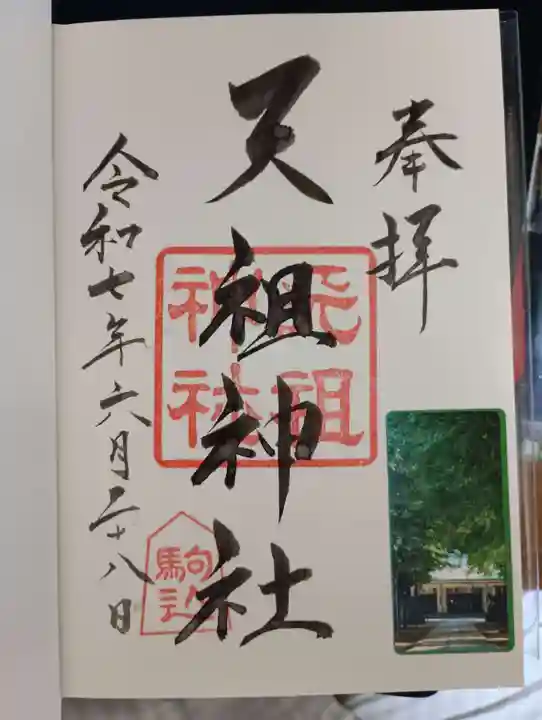 奉拝
天祖神社
天祖
神社
駒込
令和七年六月二十八日